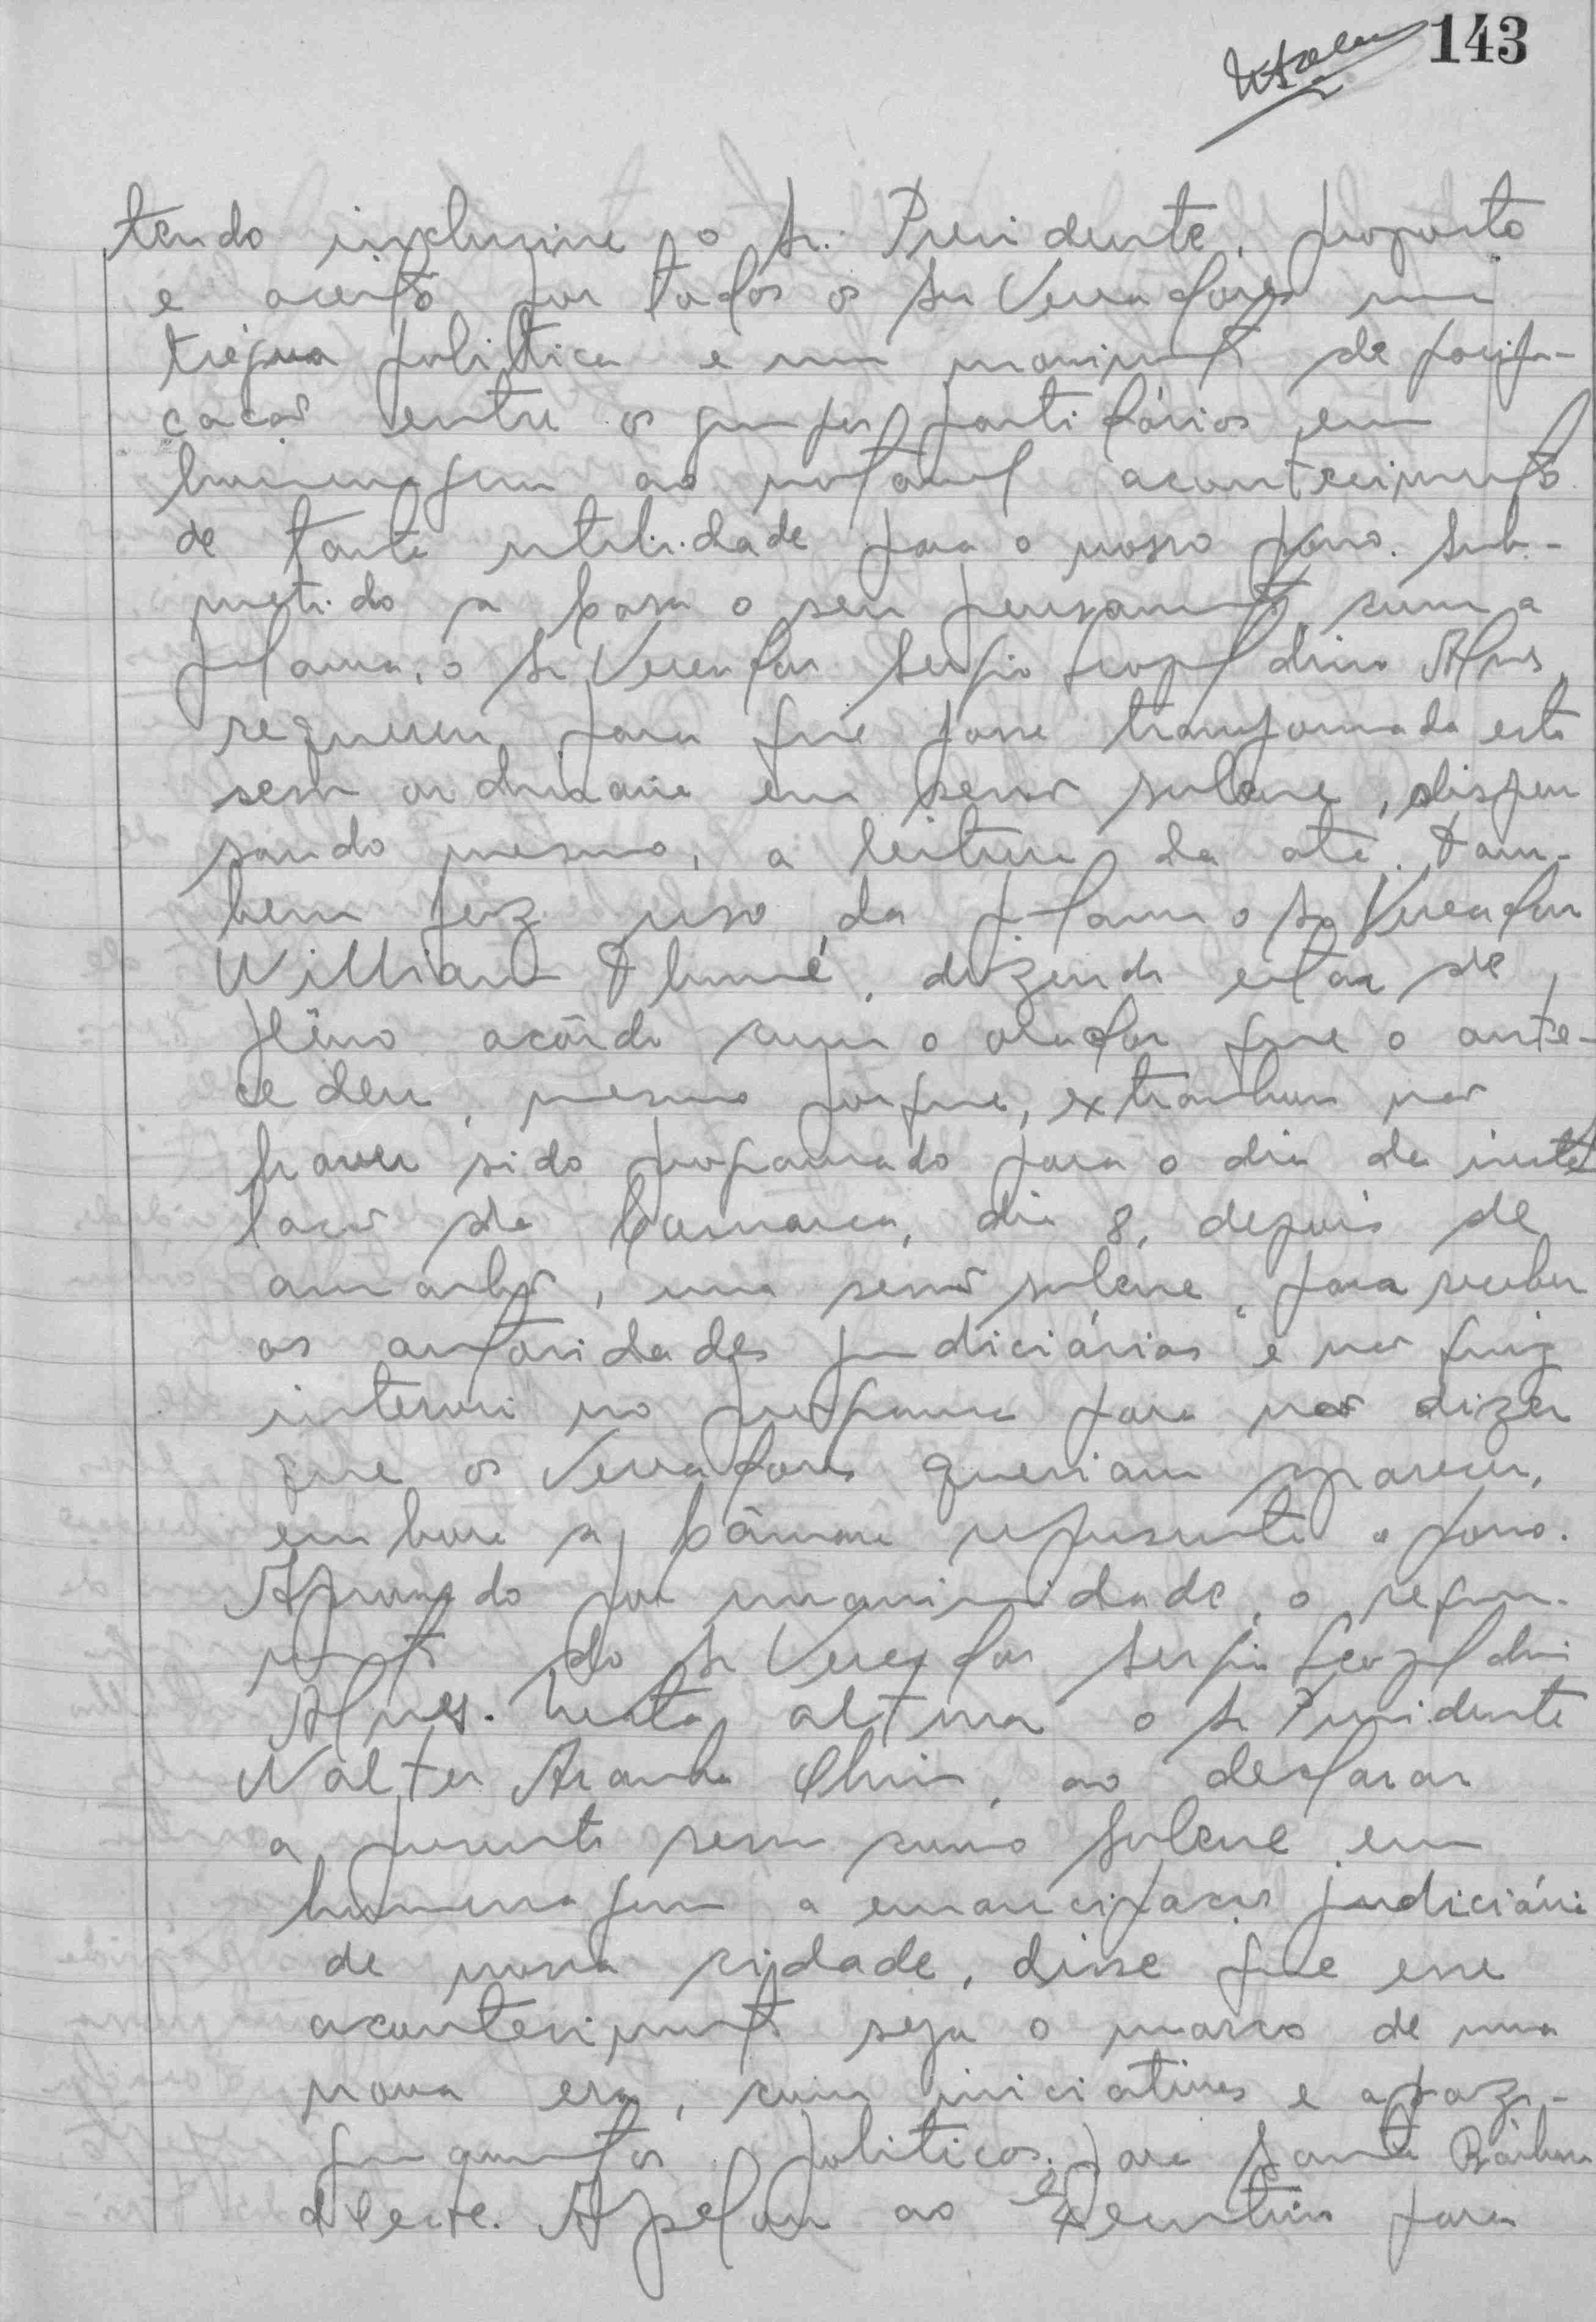 143
tendo inclusive o Sr. Presidente, proposto
e aceito por todos os Srs Vereadores uma
trégua politica e um movimento de pacifi-
cacão entre os grupos partidários em
homenagem ao notavel acontecimento
de tanta utilidade para o nosso povo. Sub-
metido a Casa o seu pensamento, com a
palavra, o Sr Vereador Sergio Leopoldino Alves,
requereu para que fosse transformada esta
sessão ordinaria em sessão solene, dispen
sando mesmo, a leitura da ata. Tam-
bem fez uso da palavra o Sr Vereador
William Thomé, dizendo estar de
plêno acôrdo com o orador que o ante-
cedeu, mesmo porque, extranhou não
haver sido programado para o dia da insta
lacão da Comarca, dia 8, depois de
amanhã, uma sessão solene, para receber
as autoridades judiciárias e não quiz
intervir no programa para não dizer
que os Vereadores queriam aparecer,
embora a Câmara represente o povo.
Aprovado por unanimidade, o requeri-
mento do Sr Vereador Sergio Leopoldino
Alves. Nesta altura o Sr Presidente
Walter Aranha Olivio, ao declarar
a presente sessão como solene em
homenagem a emancipacão judiciária
de nossa cidade, disse que esse
acontecimento seja o marco de uma
nova era, com iniciativas e apazi-
guamentos politicos, para Santa Bárbara
d'Oeste. Apelou ao Executivo para